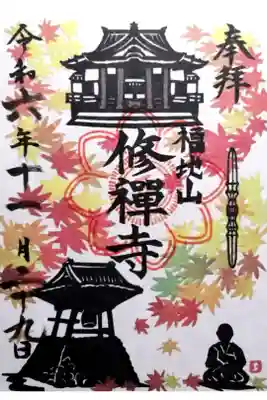 奉拝
福地山
修禪寺
令和六年十一月二十九日